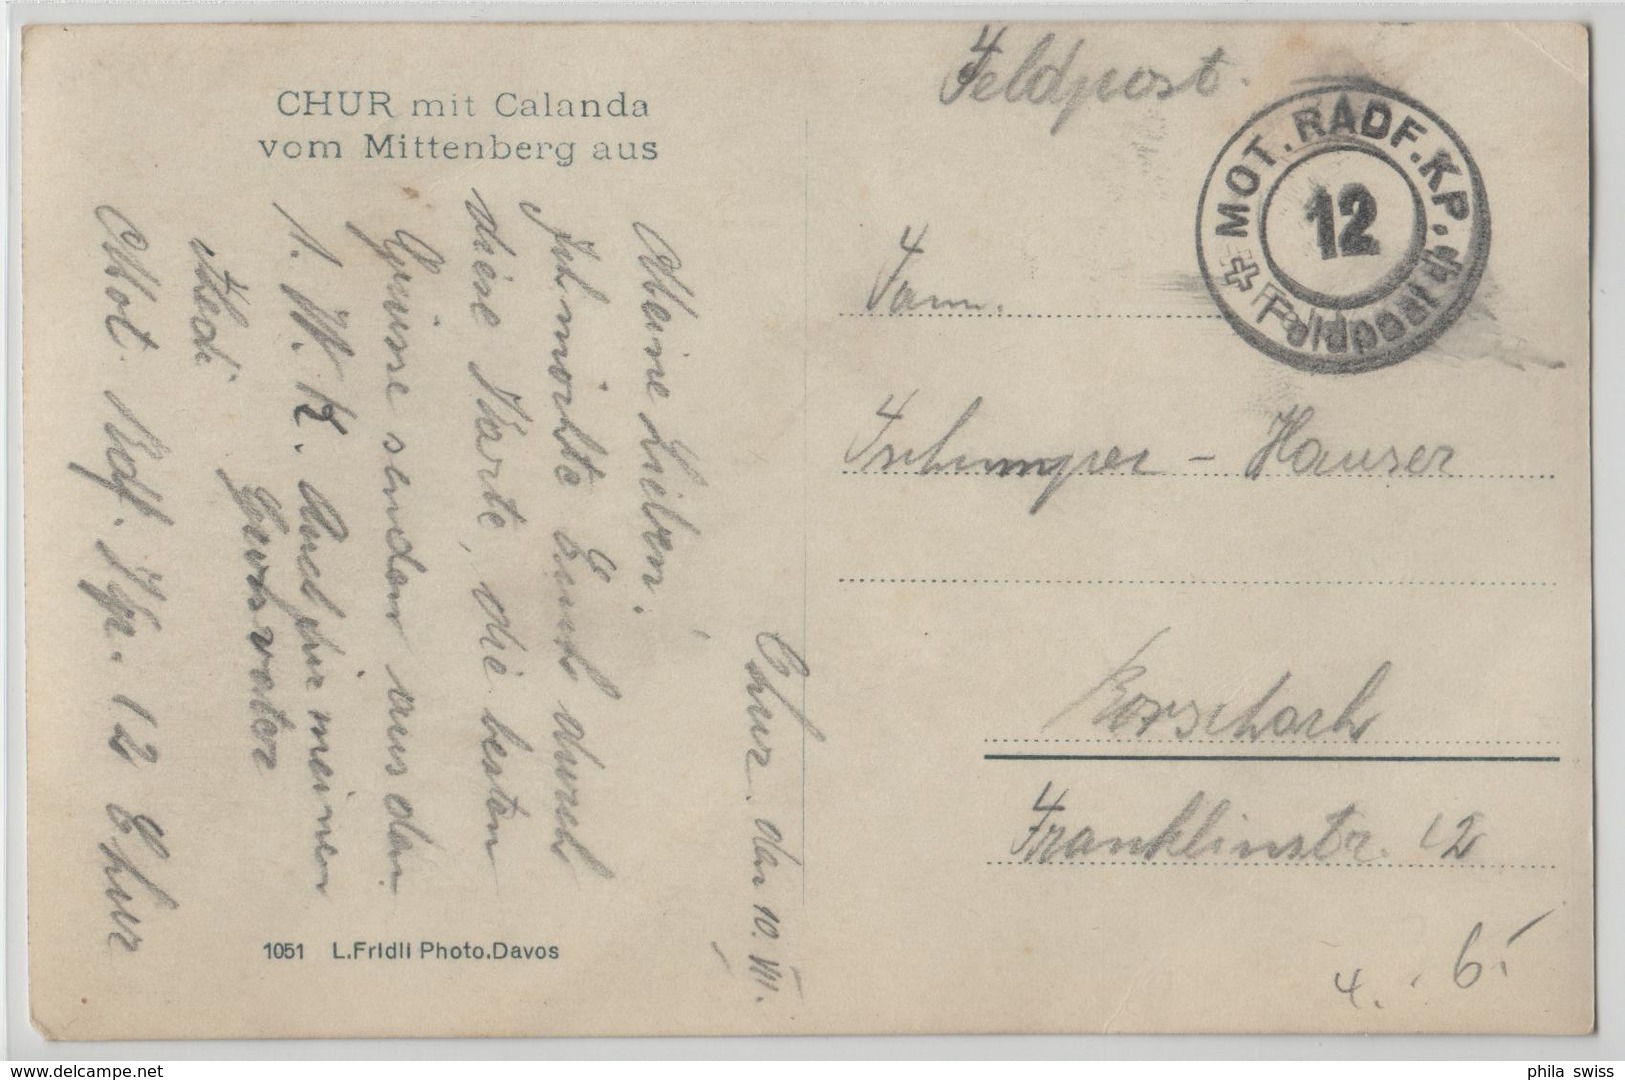 CHUR mit Calanda
vom Mittenberg aus
Chur, den 10. VIII.
Meine Lieben!
Ich möchte Euch durch
diese Karte, die besten
Grüsse senden aus dem
1. W.K. Auch für meinen
Hedi
Mot. Rdf. Kp. 12 Chur
1051 L.Fridli Photo.Davos
Feldpost.
MOT. RADF. KP.
12
Feldpost
Fam.
Tschumper - Hauser
Rorschach
Franklinstr. 12
4. 6.
delcampe.net
phila swiss